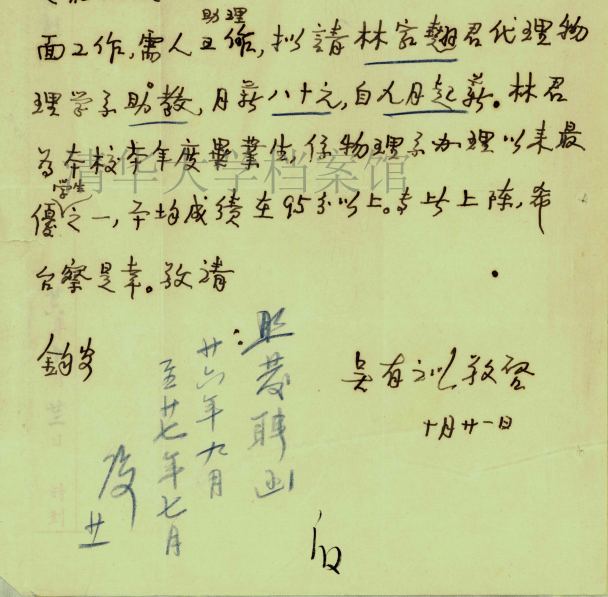 助理
面工作,需人工作,拟請林家翹君代理物
理学系助教,月薪八十元,自九月起薪。林君
為本校本年度畢業生,係物理系办理以来最
学生
優之一,平均成績在95分以上。专此上陳,希
台察是幸。敬請
鈞安
吴有训敬啓
十月廿一日
照發聘函:
廿六年九月
至廿七年七月
廿
清华大学档案馆